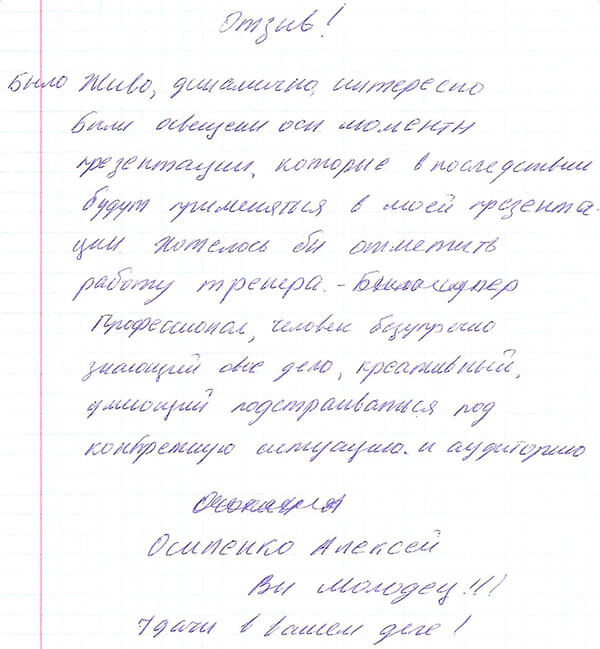 Отзыв!
Было живо, динамично, интересно
Были освещены осн моменты
презентации, которые в последствии
будут применяться в моей презента-
ции. Хотелось бы отметить
работу тренера. - супер
Профессионал, человек безупречно
знающий свое дело, креативный,
умеющий подстраиваться под
конкретную ситуацию. и аудиторию
Осипенко Алексей
Вы молодец!!!
Удачи в вашем деле!